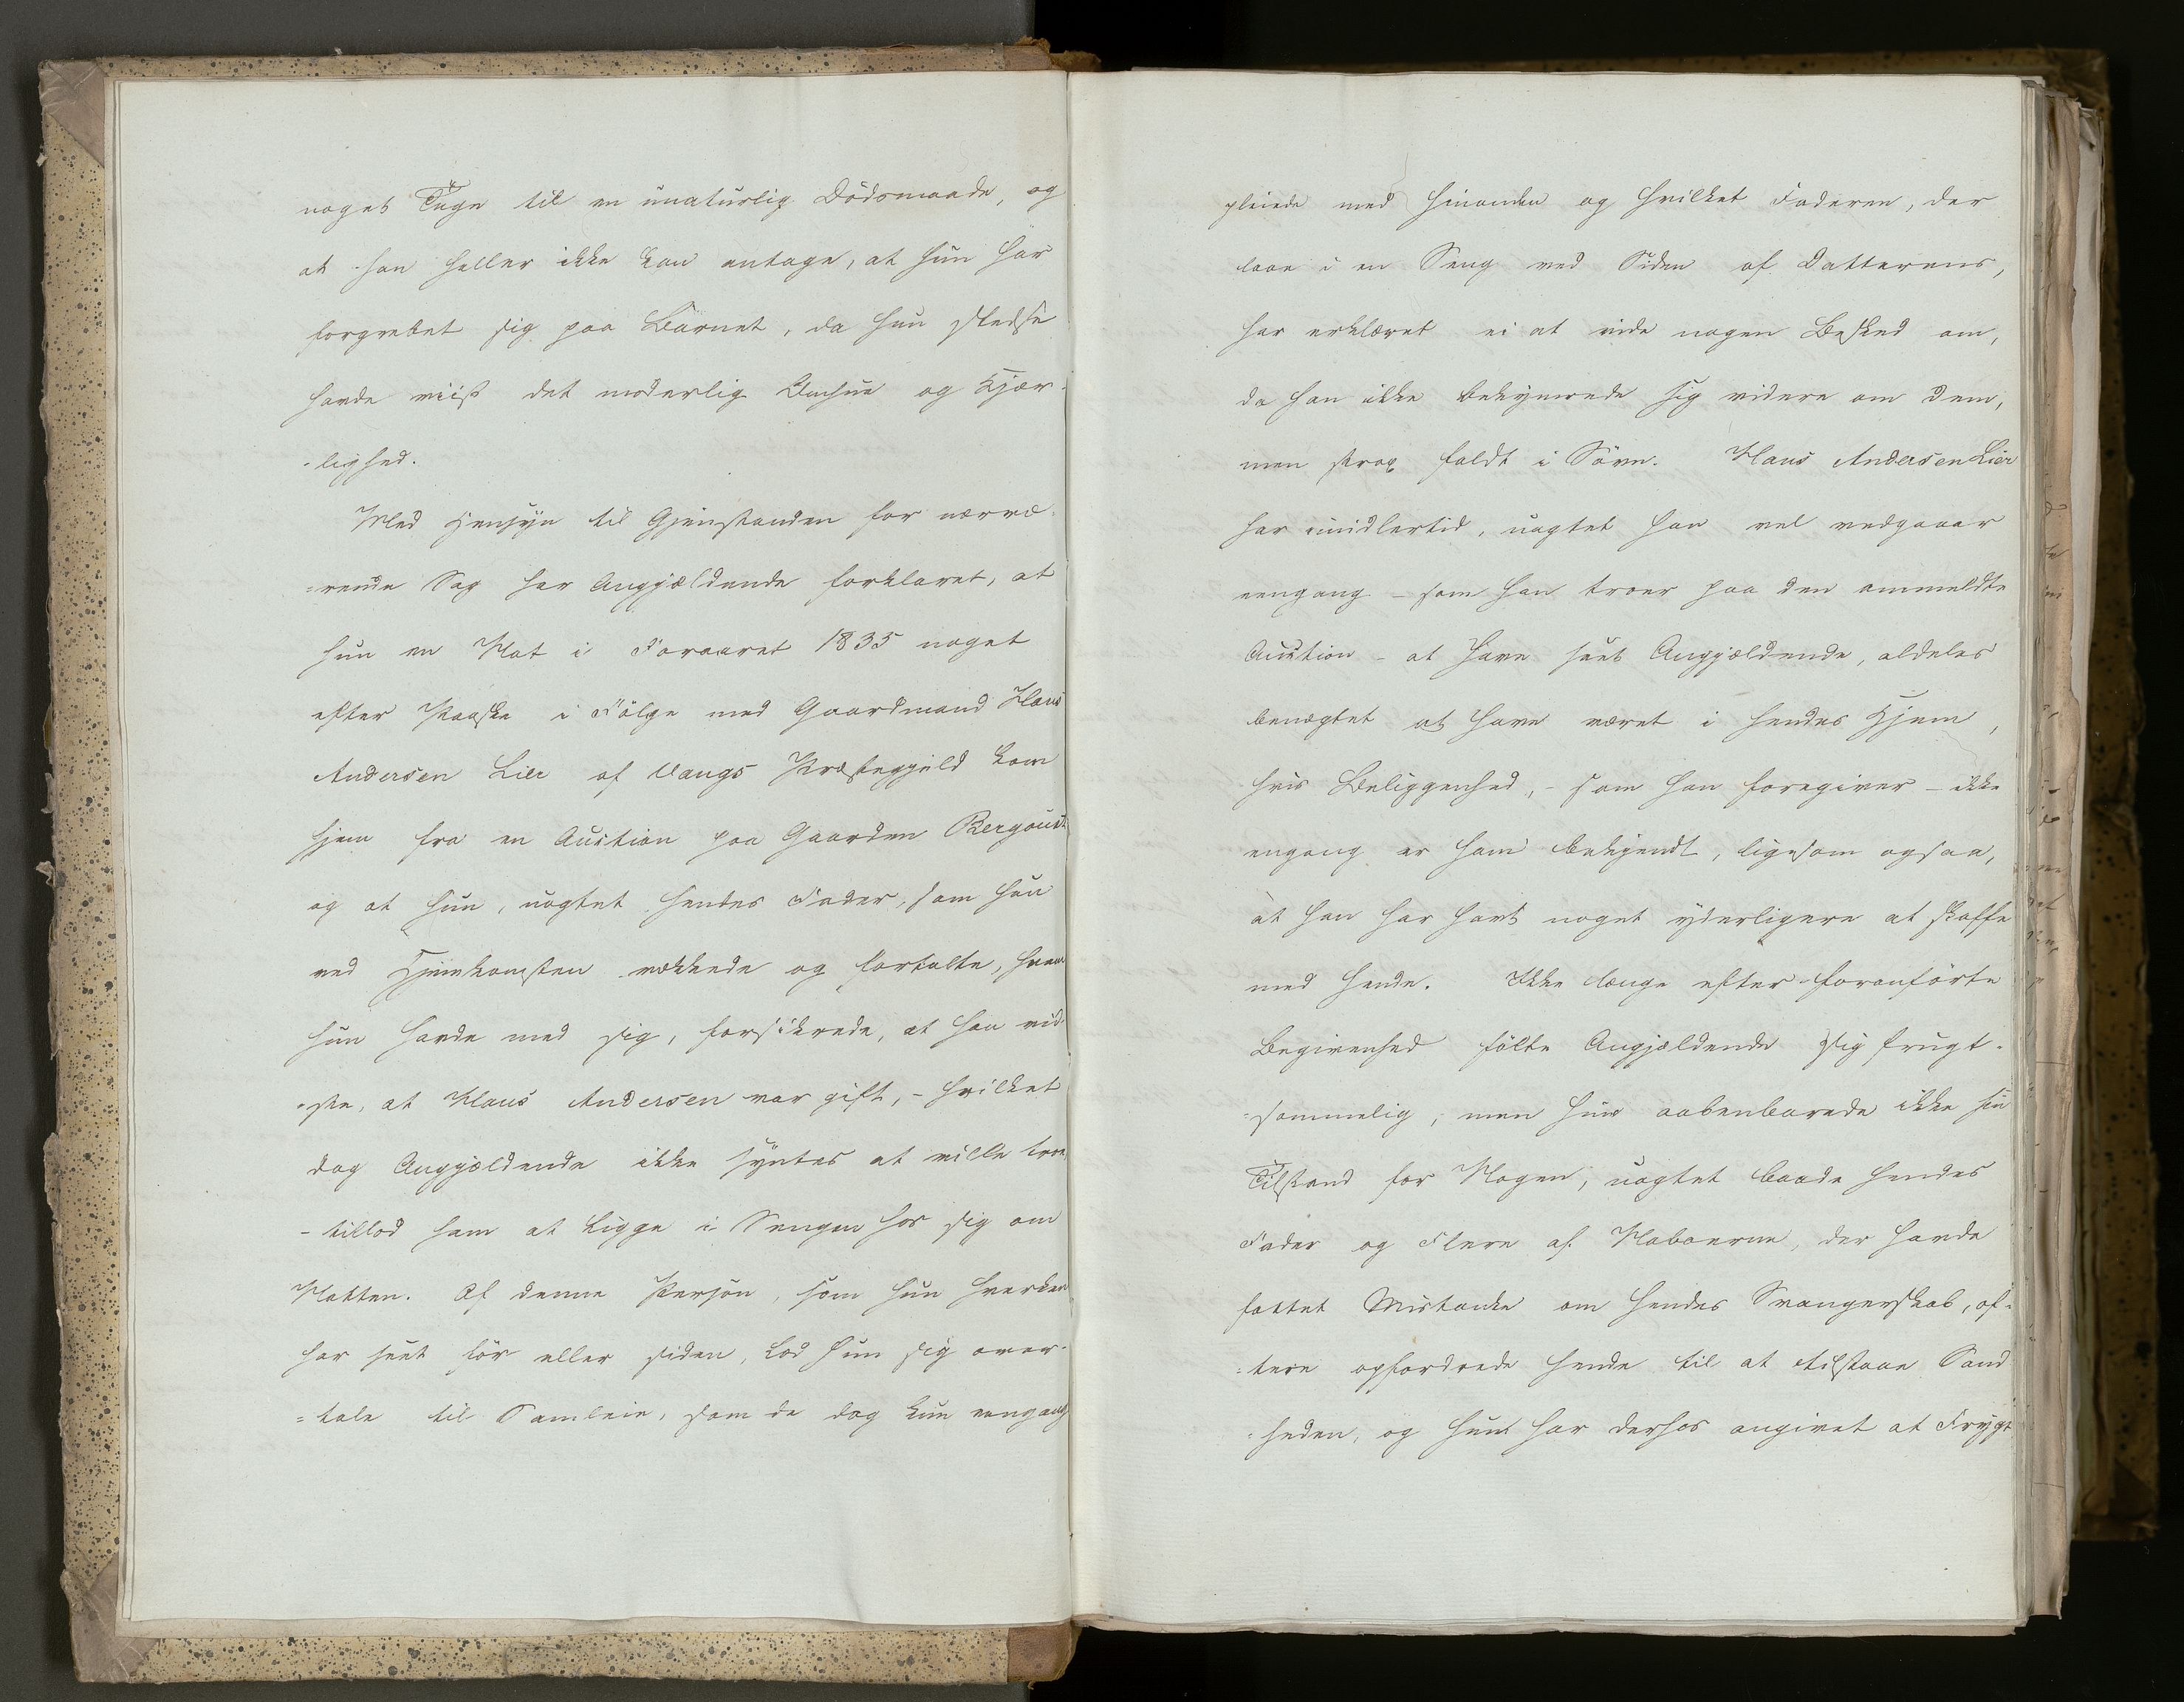 noget Tegn til en unaturlig Dödsmaade, og
at han heller ikke kan antage, at hun har
forgrebet sig paa Barnet, da hun stedse
havde viist det moderlig Omhue og Kjær-
-lighed.
Med Hensyn til Gjenstanden for nærvæ-
=rende Sag har Angjældende forklaret, at
hun en Nat i Foraaret 1835 noget
efter Paaske i Fölge med Gaardmand Hans
Andersen Lier af Vangs Præstegjeld kom
hjem fra en Auction paa Gaarden
og at hun, uagtet hendes Fader, som hun
ved Hjemkomsten vækkede og fortalte, hvem
hun havde med sig, forsikrede, at han vid-
-ste, at Hans Andersen var gift, - hvilket
dog Angjældende ikke syntes at ville troe
- tillod ham at ligge i Sengen hos sig om
Natten. Af denne Person, som hun hverken
har seet för eller siden, lod hun sig over-
=tale til Samleie, som de dog kun engang
pleiede med hinanden og hvilket Faderen, der
laae i en Seng ved Siden af Datterens,
har erklæret ei at vide nogen Besked om,
da han ikke bekymrede sig videre om dem,
men strax faldt i Sövn. Hans Andersen Lier
har imidlertid, uagtet han vel vedgaaer
eengang - som han troer paa den ommeldte
Auction - at have seet Angjældende, aldeles
benægtet at have været i hendes Hjem,
hvis Beliggenhed, - som han foregiver - ikke
engang er ham bekjendt, ligesom ogsaa,
at han har havt noget yderligere at skaffe
med hende. Ikke længe efter foranförte
Begivenhed fölte Angjældende sig frugt-
-sommelig, men hun aabenbarede ikke sin
Tilstand for Nogen, uagtet baade hendes
Fader og Flere af Naboerne, der havde
fattet Mistanke om hendes Svangerskab, of-
=tere opfordrede hende til at tilstaae Sand
-heden, og hun har derhos angivet at Frygt